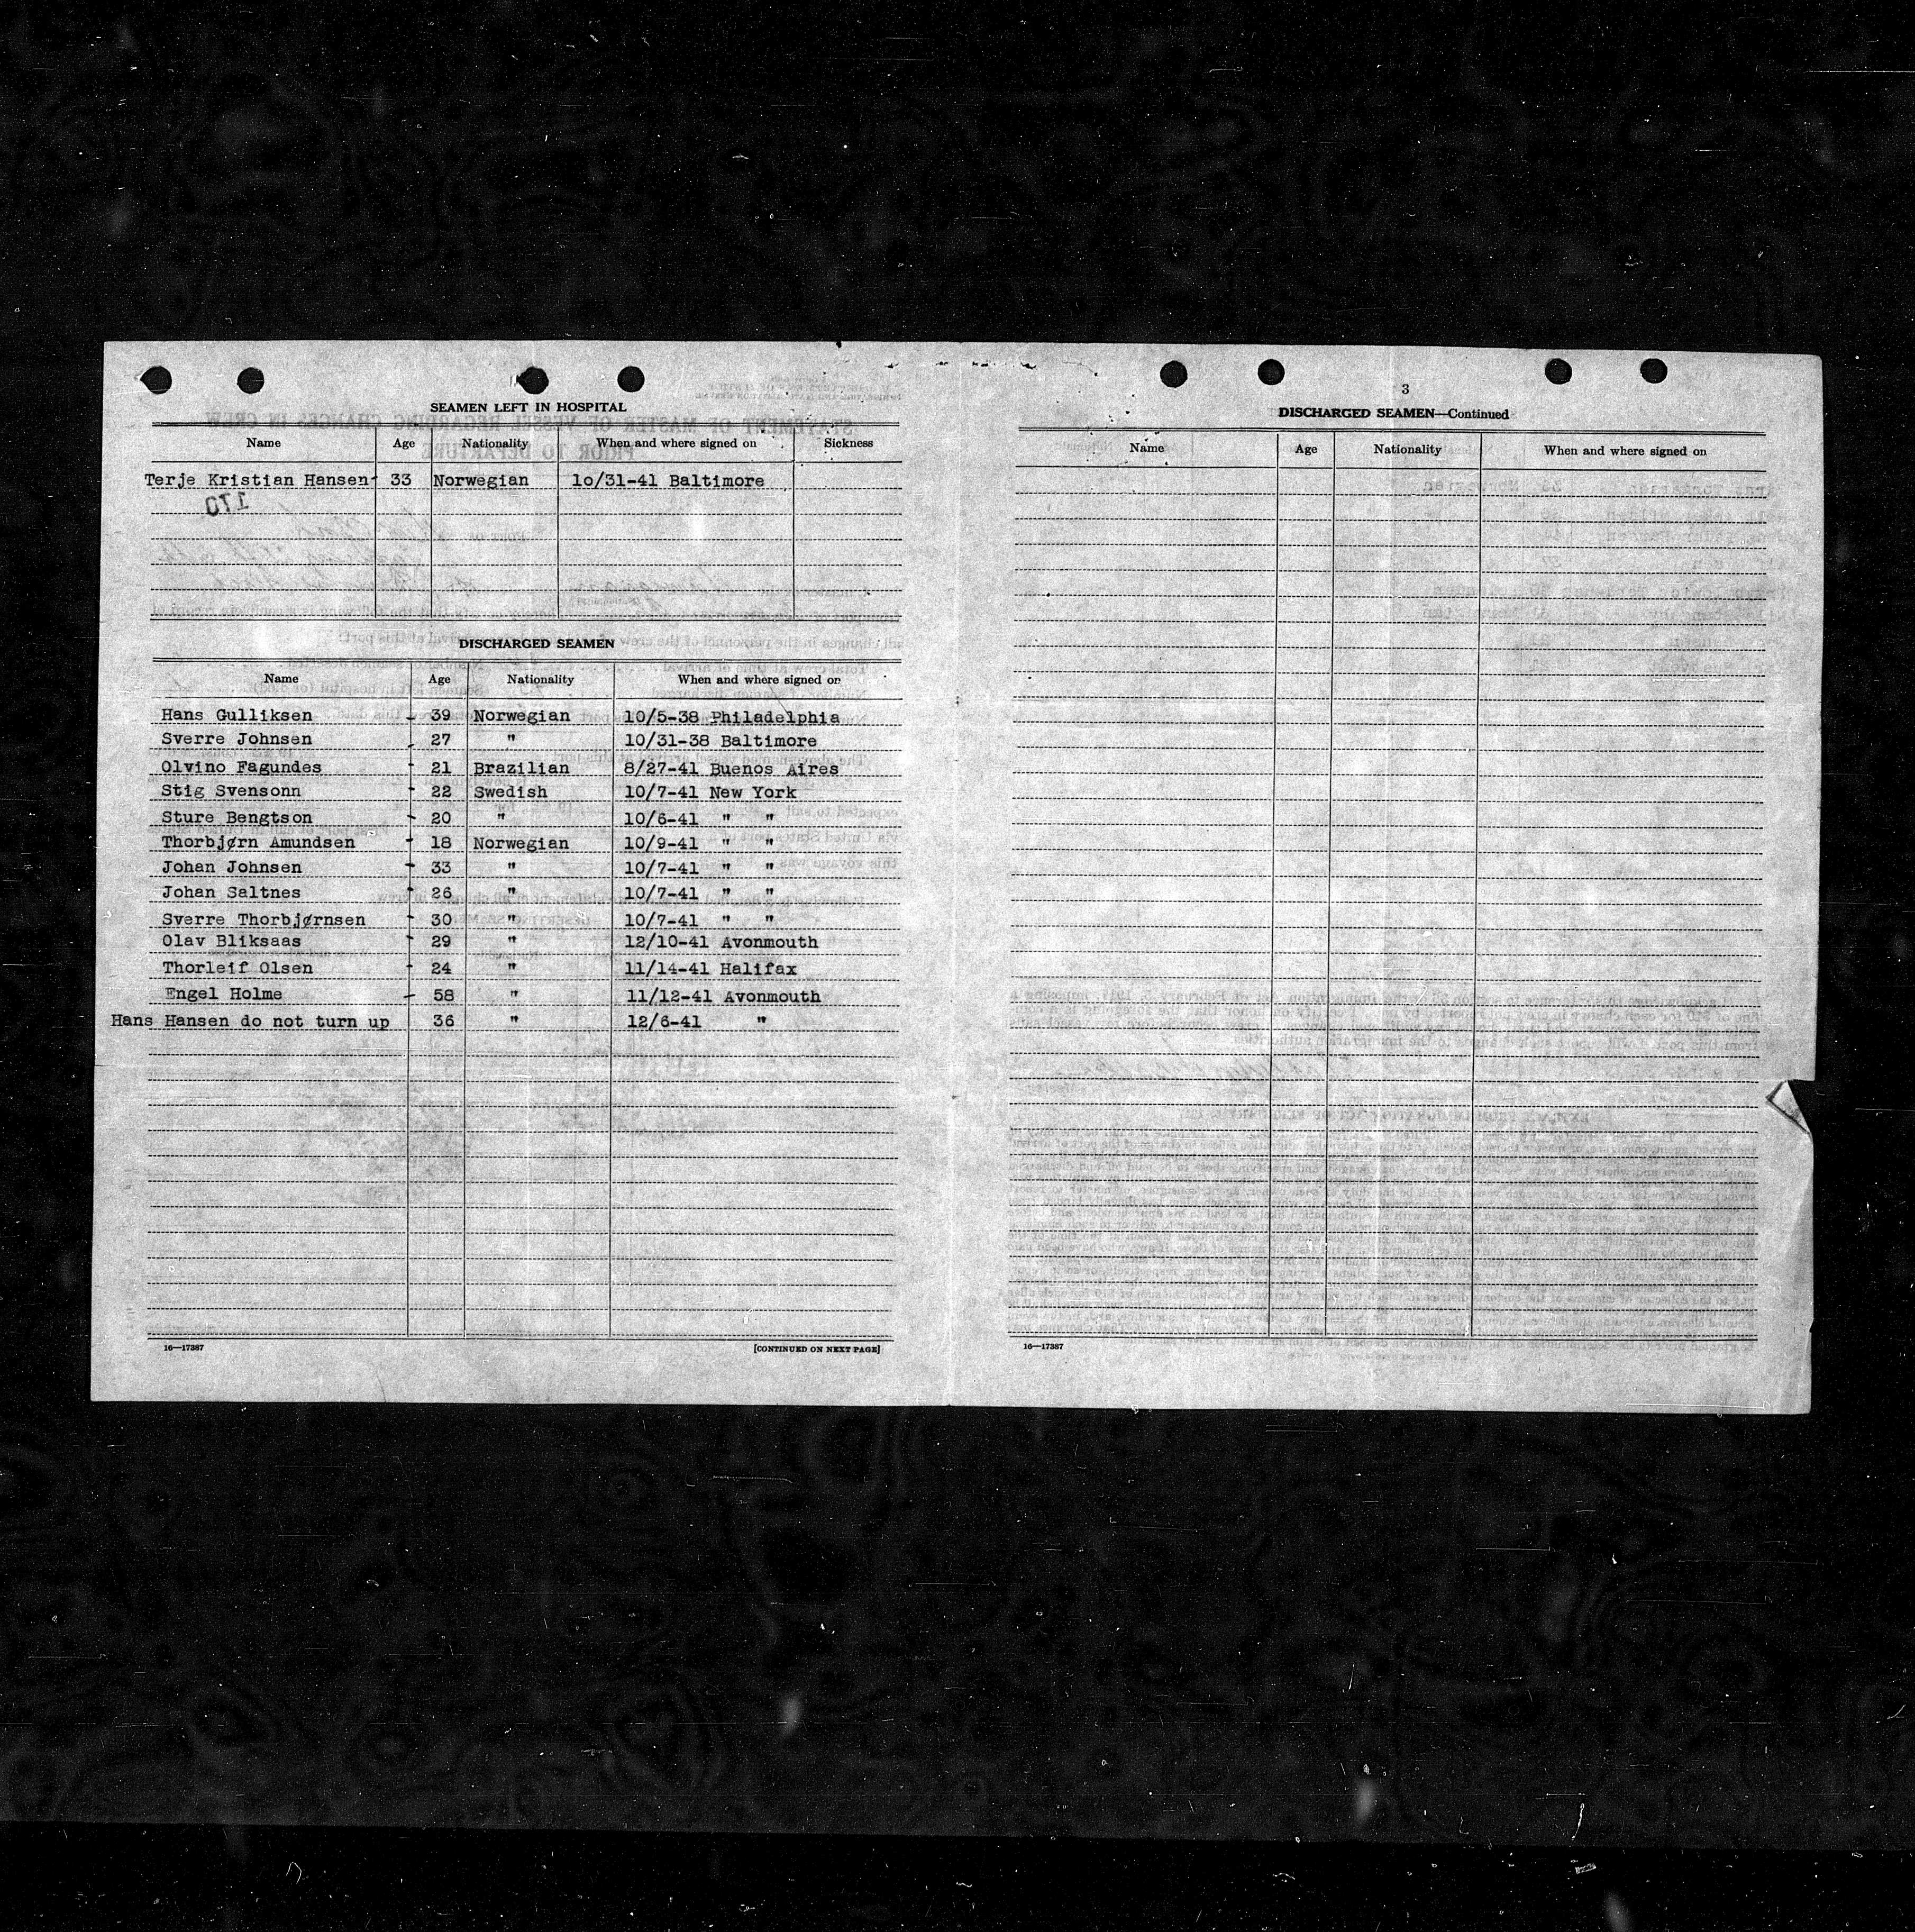 SEAMEN LEFT IN HOSPITAL
Name Age Nationality When and where signed on Sickness
Terje Kristian Hansen 33 Norwegian 1o/31-41 Baltimore
170
DISCHARGED SEAMEN
Name Age Nationality When and where signed on
Hans Gulliksen - 39 Norwegian 10/5-38 Philadelphia
Sverre Johnsen - 27 " 10/31-38 Baltimore
Olvino Fagundes - 21 Brazilian 8/27-41 Buenos Aires
Stig Svensonn - 22 Swedish 10/7-41 New York
Sture Bengtson - 20 " 10/6-41 " "
Thorbjørn Amundsen - 18 Norwegian 10/9-41 " "
Johan Johnsen - 33 " 10/7-41 " "
Johan Saltnes - 26 " 10/7-41 " "
Sverre Thorbjørnsen - 30 " 10/7-41 " "
Olav Bliksaas - 29 " 12/10-41 Avonmouth
Thorleif Olsen - 24 " 11/14-41 Halifax
Engel Holme - 58 " 11/12-41 Avonmouth
Hans Hansen do not turn up 36 " 12/6-41 "
16—17387 [CONTINUED ON NEXT PAGE]
3
DISCHARGED SEAMEN—Continued
Name Age Nationality When and where signed on
16—17387